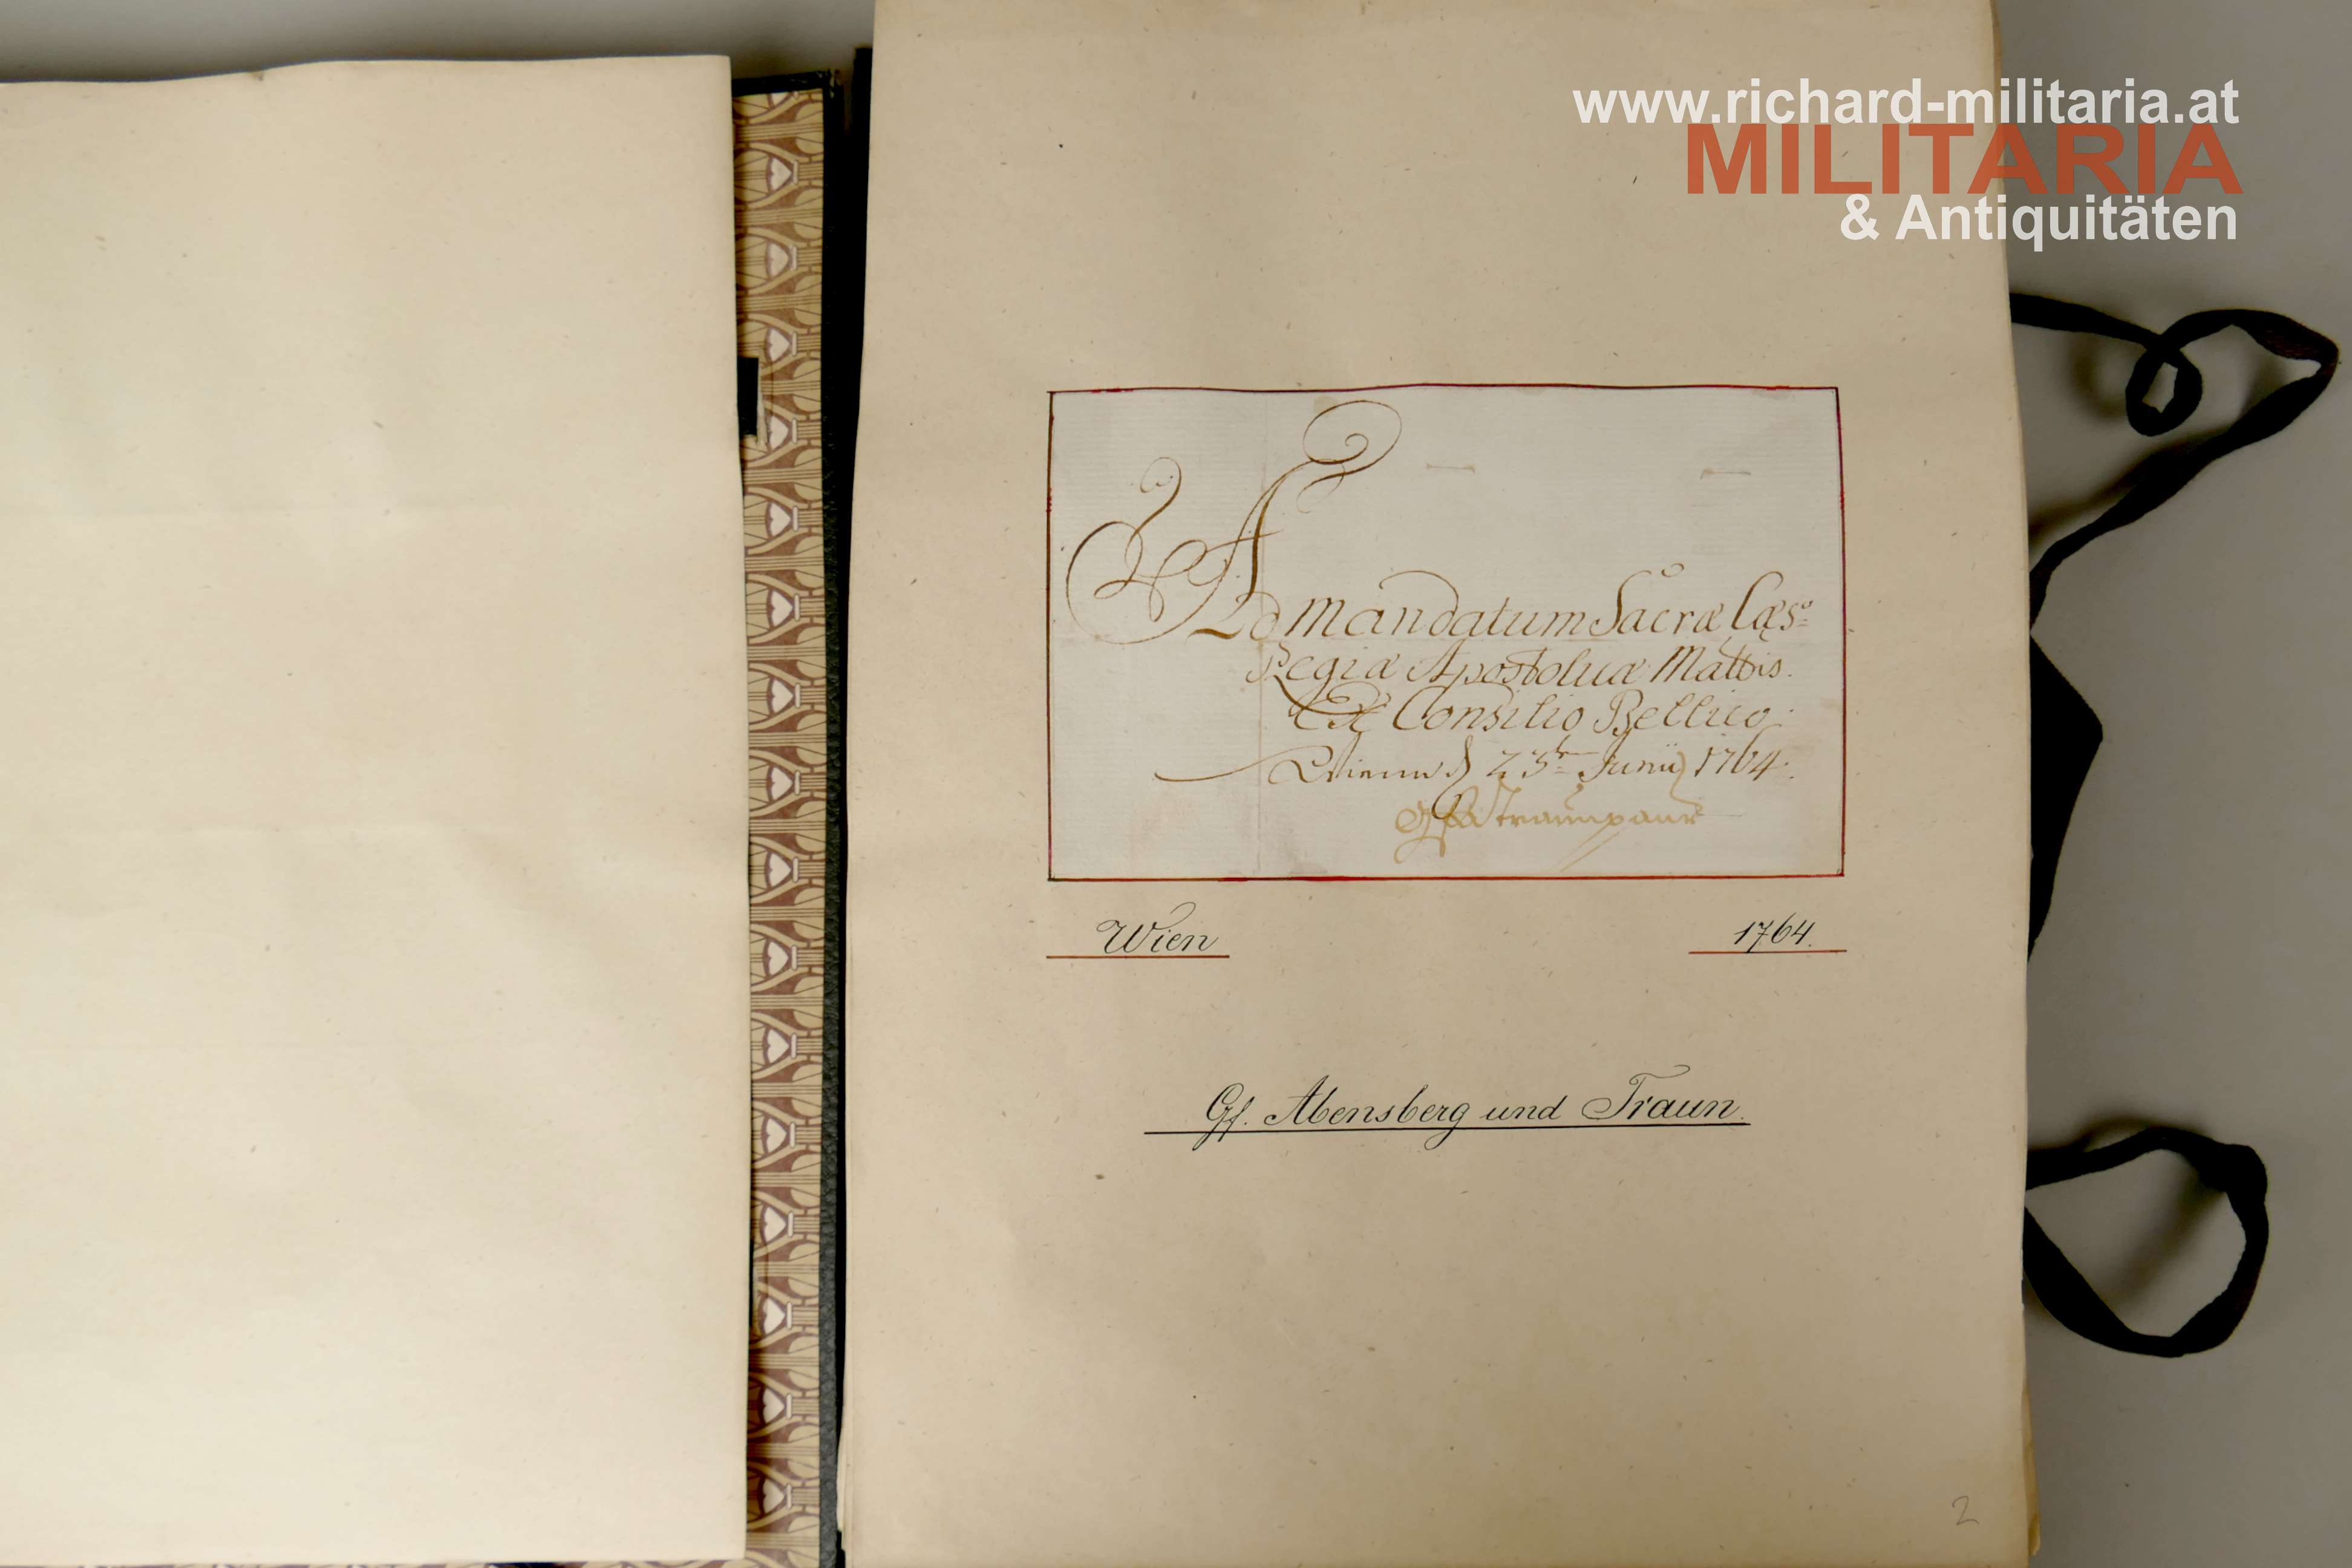 www.richard-militaria.at
MILITARIA
& Antiquitäten
Ad Mandatum Sacræ Cæs:
Regiæ Apostolicæ Mattis.
Ex Consilio Bellico.
Junii 1764.
Wien
1764.
Gf. Abensberg und Traun.
2